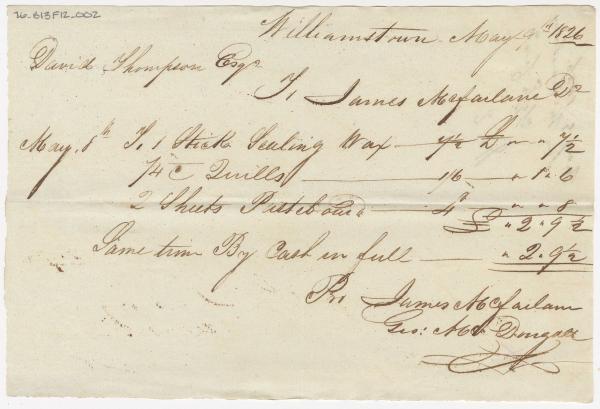 76-B13F12_002
Williamstown May 9th 1826
David Thompson Esqr
To James Mcfarlane Dr
May 8th To 1 Stick Sealing Wax — 7½ £ " " 7½
¼ C Quills — 1/6 — " 1 " 6
2 Sheets Pasteboard — 4d " " 8
£ " 2 " 9½
Same time By Cash in full — " 2 " 9½
Pr James Mcfarlane
Geo: Mc Dougall